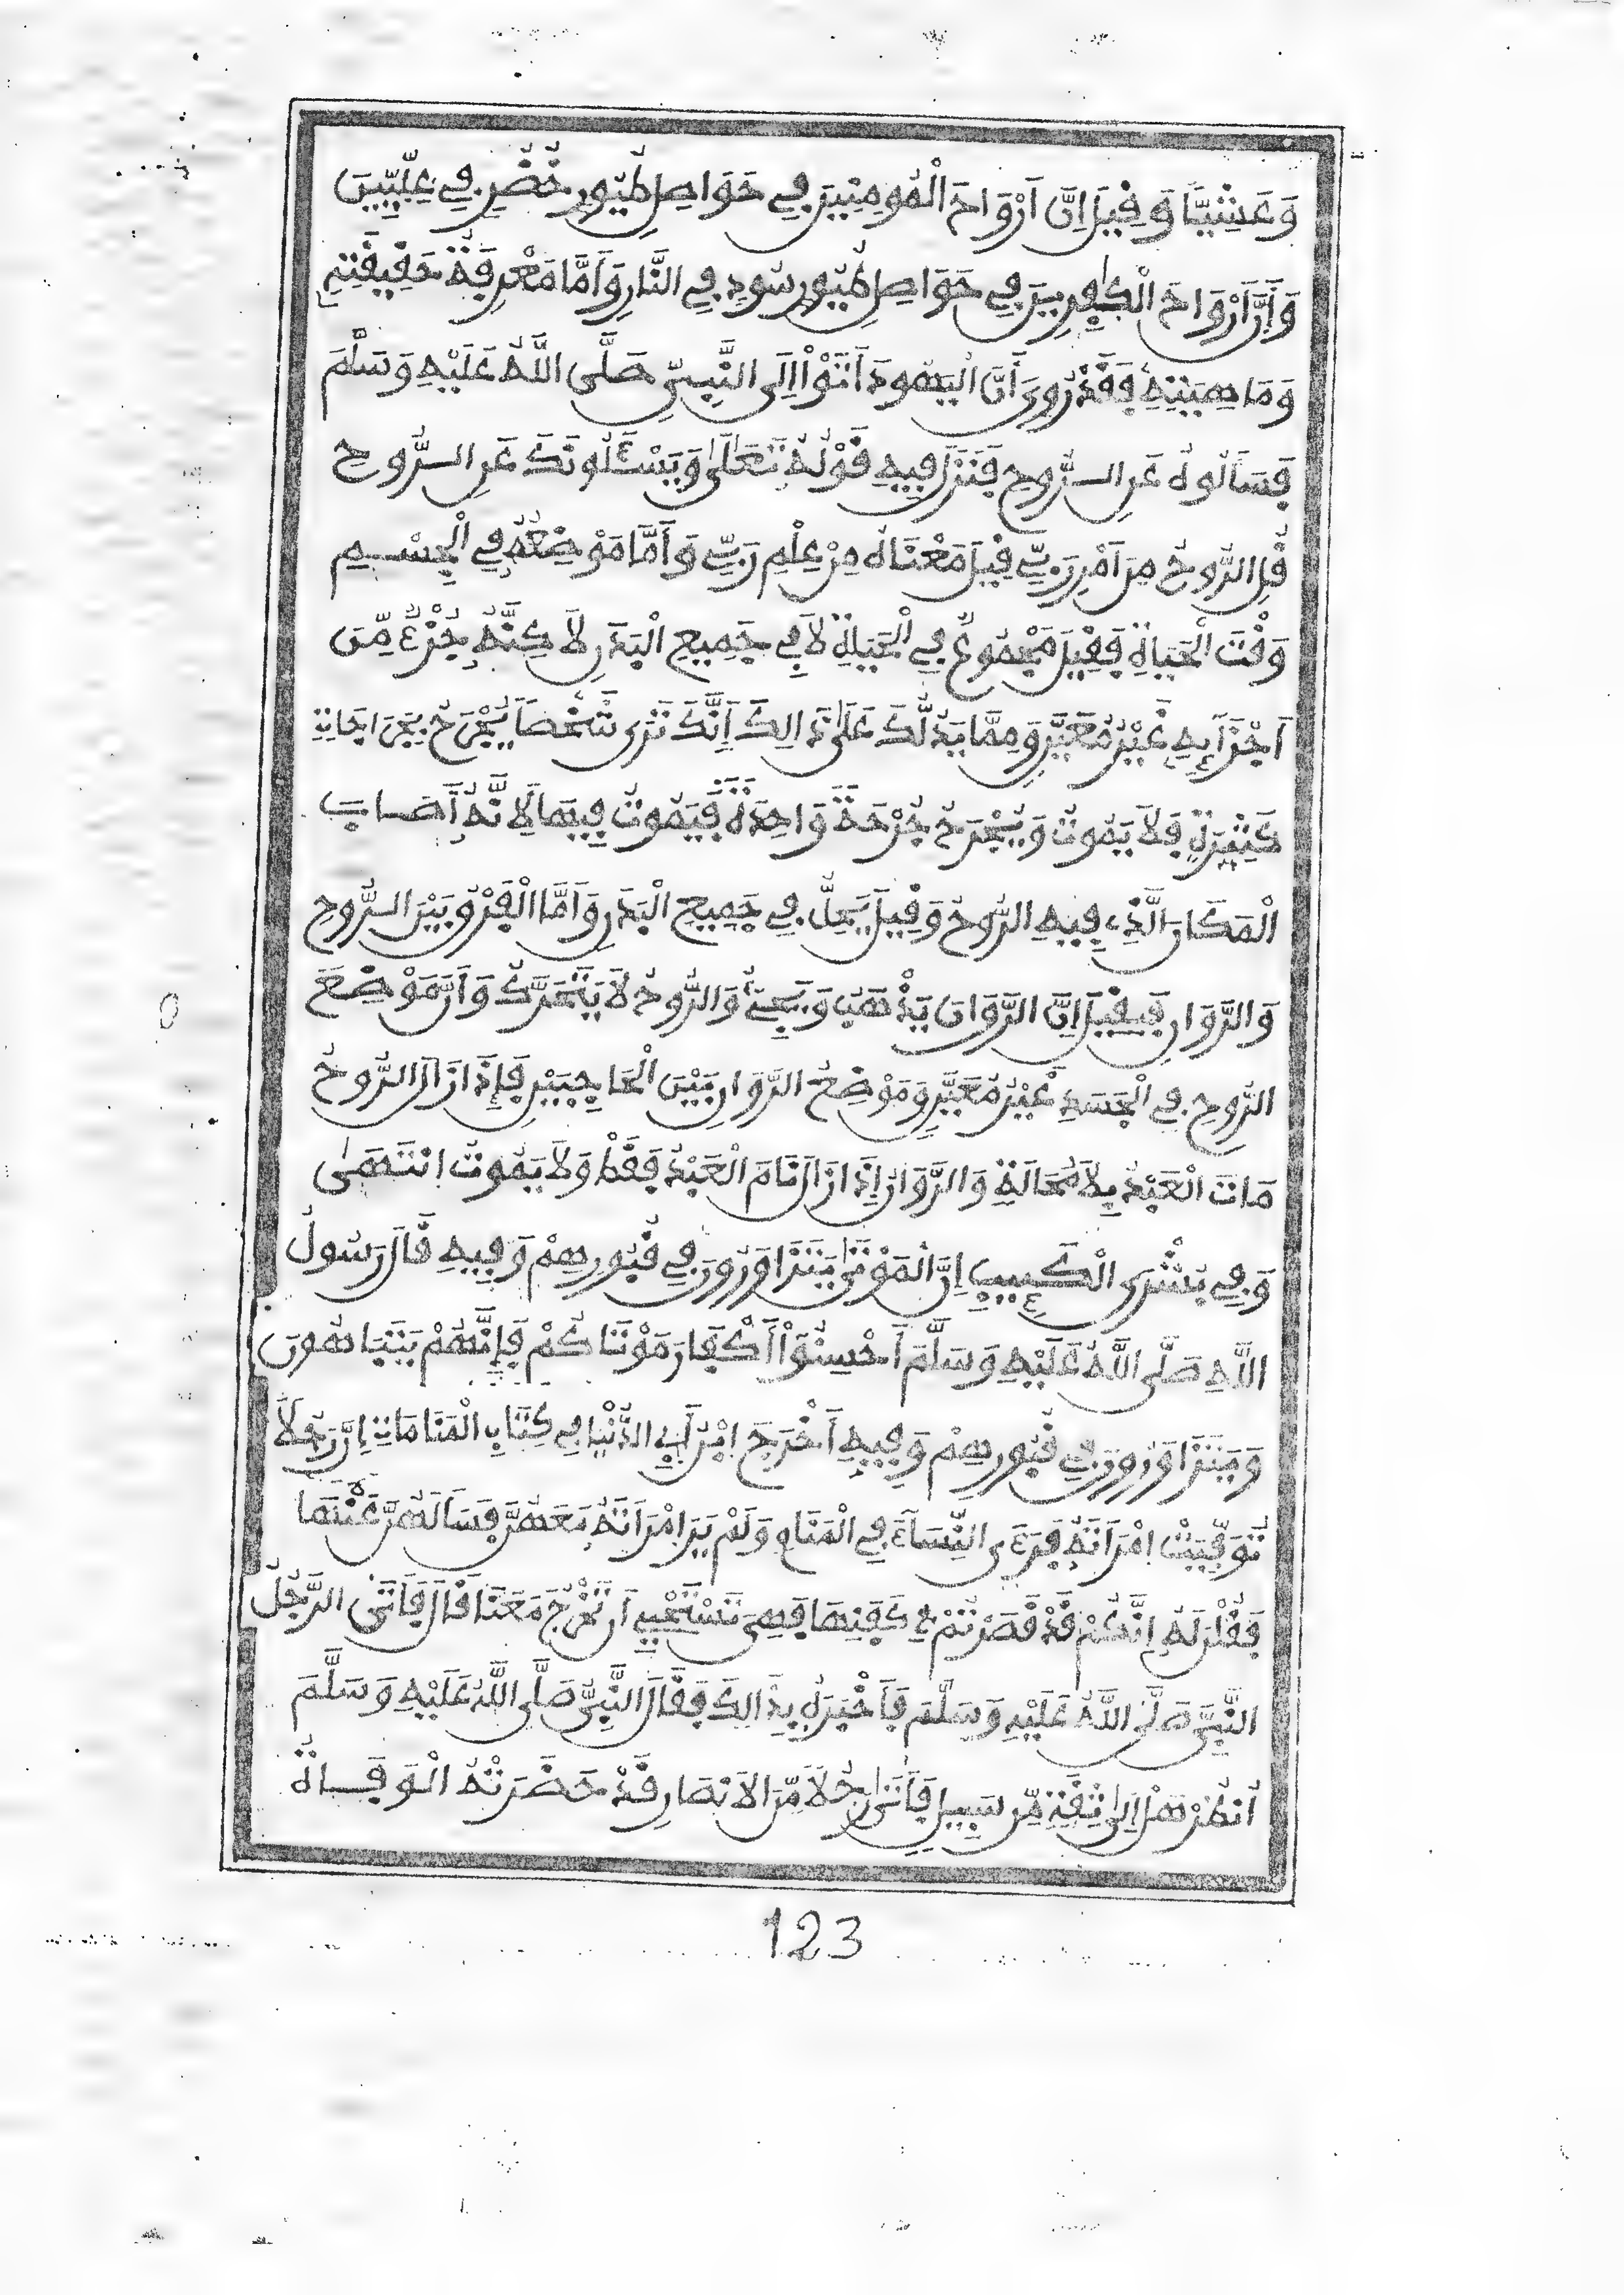 وَعَشِيّٗا وَقِيلَ إِنَّ أَرْوَاحَ الْمُومِنِينَ فِي حَوَاصِلِ طُيُورٍ خُضْرٍ فِي عِلِّيِّينَ
وَأَنَّ أَرْوَاحَ الْكٰفِرِينَ فِي حَوَاصِلِ طُيُورٍ سُودٍ فِي النَّارِ وَأَمَّا مَعْرِفَةُ حَقِيقَتِهِ
وَمَاهِيَتِهِ فَقَدْ رُوِيَ أَنَّ الْيَهُودَ أَتَوْاْ إِلَى النَّبِيِّ صَلَّى اللَّهُ عَلَيْهِ وَسَلَّمَ
فَسَأَلُوهُ عَنِ الرُّوحِ فَنَزَلَ فِيهِ قَوْلُهُ تَعَالَىٰ وَيَسْـَٔلُونَكَ عَنِ الرُّوحِ
قُلِ الرُّوحُ مِنَ اَمْرِ رَبِّي قِيلَ مَعْنَاهُ مِنْ عِلْمِ رَبِّي وَأَمَّا مَوْضِعُهُ فِي الْجِسْمِ
وَقْتَ الْحَيَاةِ فَقِيلَ مَجْمُوعٌ فِي الْحَيَاةِ لَا فِي جَمِيعِ الْبَدَنِ لَاكِنَّهُ جُزْءٌ مِّنَ
اَجْزَآئِهِ غَيْرُ مُعَيَّنٍ وَمِمَّا يَدُلُّكَ عَلَىٰ ذَالِكَ أَنَّكَ تَرَى شَخْصاً يُجْرَحُ بِجِرَاحَاتٍ
كَثِيرَةٍ فَلَا يَمُوتُ وَيُجْرَحُ جُرْحَةً وَاحِدَةً فَيَمُوتُ فِيهَا لِأَنَّهُ أَصَابَ
الْمَكَانَ الَّذِي فِيهِ الرُّوحُ وَقِيلَ يَحِلُّ فِي جَمِيعِ الْبَدَنِ وَأَمَّا الْفَرْقُ بَيْنَ الرُّوحِ
وَالرَّوَانِ فَقِيلَ إِنَّ الرَّوَانَ يَذْهَبُ وَيَجِيءُ وَالرُّوحُ لَا يَتَحَرَّكُ وَأَنَّ مَوْضِعَ
الرُّوحِ فِي الْجَسَدِ غَيْرُ مُعَيَّنٍ وَمَوْضِعُ الرَّوَانِ بَيْنَ الْحَاجِبَيْنِ فَإِذَا زَالَ الرُّوحُ
مَاتَ الْعَبْدُ بِلَا مُحَالَةٍ وَالرَّوَانُ إِذَا زَالَ نَامَ الْعَبْدُ فَقَطْ وَلَا يَمُوتُ انْتَهَىٰ
وَفِي بُشْرَى الْكَئِيبِ إِنَّ الْمَوْتَىٰ يَتَزَاوَرُونَ فِي قُبُورِهِمْ وَفِيهِ قَالَ رَسُولُ
اللَّهِ صَلَّى اللَّهُ عَلَيْهِ وَسَلَّمَ أَحْسِنُوٓاْ أَكْفَانَ مَوْتَاكُمْ فَإِنَّهُمْ يَتَبَاهُونَ
وَيَتَزَاوَرُونَ فِي قُبُورِهِمْ وَفِيهِ أَخْرَجَ ابْنُ أَبِي الدُّنْيَا فِي كِتَابِ الْمَنَامَاتِ إِنَّ رَجُلًا
تُوُفِّيَتْ اِمْرَأَتُهُ فَرَءَى النِّسَآءَ فِي الْمَنَامِ وَلَمْ يَرَ امْرَأَتَهُ مَعَهُنَّ فَسَأَلَهُنَّ عَنْهَا
فَقُلْنَ لَهُ إِنَّكُمْ قَدْ قَصَّرْتُمْ فِي كَفَنِهَا فَهِيَ تَسْتَحْيِي أَن تَخْرُجَ مَعَنَا قَالَ فَأَتَى الرَّجُلُ
النَّبِيَّ صَلَّى اللَّهُ عَلَيْهِ وَسَلَّمَ فَأَخْبَرَهُ بِذَالِكَ فَقَالَ النَّبِيُّ صَلَّى اللَّهُ عَلَيْهِ وَسَلَّمَ
اُنظُرْ هَلْ إِلَىٰ ثِقَةٍ مِّن سَبِيلٍ فَأَتَىٰ رَجُلًا مِّنَ الَانْصَارِ قَدْ حَضَرَتْهُ الْوَفَاةُ
123